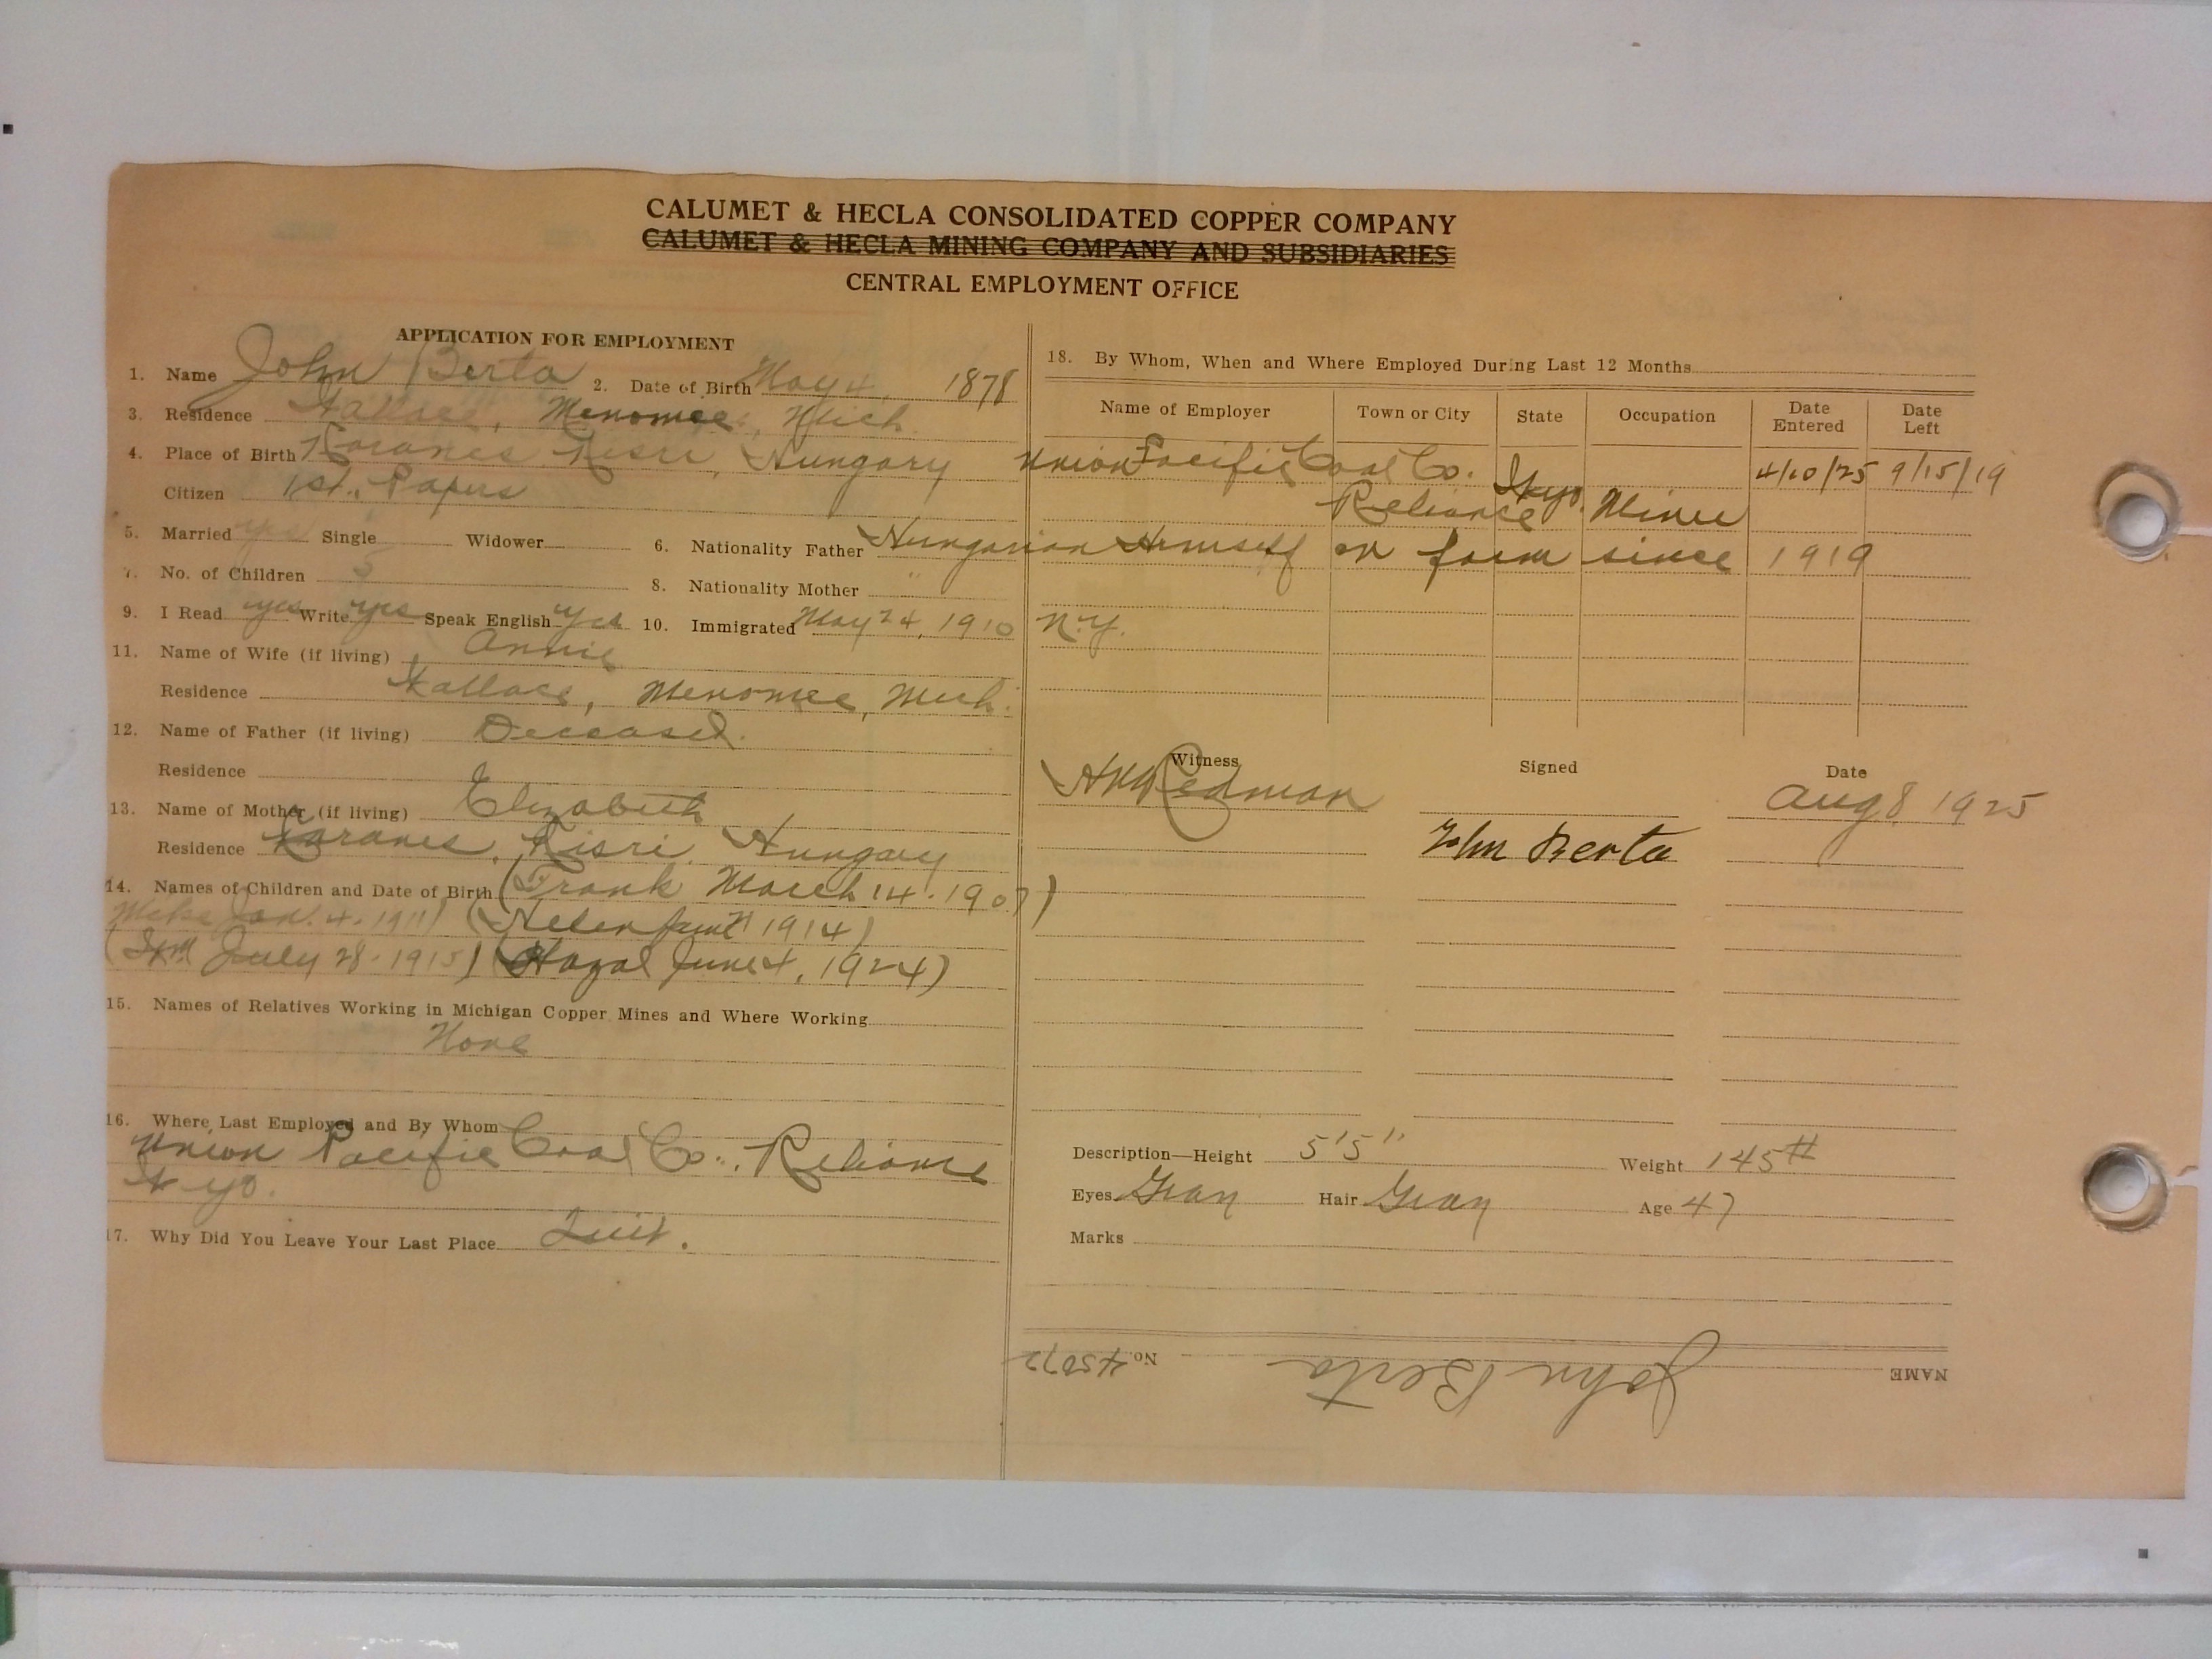 CALUMET & HECLA CONSOLIDATED COPPER COMPANY
CALUMET & HECLA MINING COMPANY AND SUBSIDIARIES
CENTRAL EMPLOYMENT OFFICE
APPLICATION FOR EMPLOYMENT
1. Name John Berta 2. Date of Birth May 4, 1878
3. Residence Wallace, Menomee, Mich.
4. Place of Birth Hungary
Citizen 1st. Papers
5. Married yes Single Widower 6. Nationality Father Hungarian
7. No. of Children 5 8. Nationality Mother "
9. I Read yes Write yes Speak English yes 10. Immigrated May 24, 1910 N.Y.
11. Name of Wife (if living) Annie
Residence Wallace, Menomee, Mich.
12. Name of Father (if living) Deceased.
Residence
13. Name of Mother (if living) Elizabeth
Residence Hungary
14. Names of Children and Date of Birth (Frank March 14. 1907)
Mike Jan. 4. 1911) (Helen 1914)
(Wm July 28. 1915) (Hazal June 4, 1924)
15. Names of Relatives Working in Michigan Copper Mines and Where Working
None
16. Where Last Employed and By Whom
Union Pacific Coal Co., Reliance
Wyo.
17. Why Did You Leave Your Last Place Quit.
18. By Whom, When and Where Employed During Last 12 Months
Name of Employer Town or City State Occupation Date Entered Date Left
Union Pacific Coal Co. 4/10/25 9/15/19
Reliance Wyo. Miner
Himself on farm since 1919
Witness Signed Date
Redman Aug 8 1925
John Berta
Description—Height 5'5" Weight 145#
Eyes Gray Hair Gray Age 47
Marks
NAME John Berta No. 45072